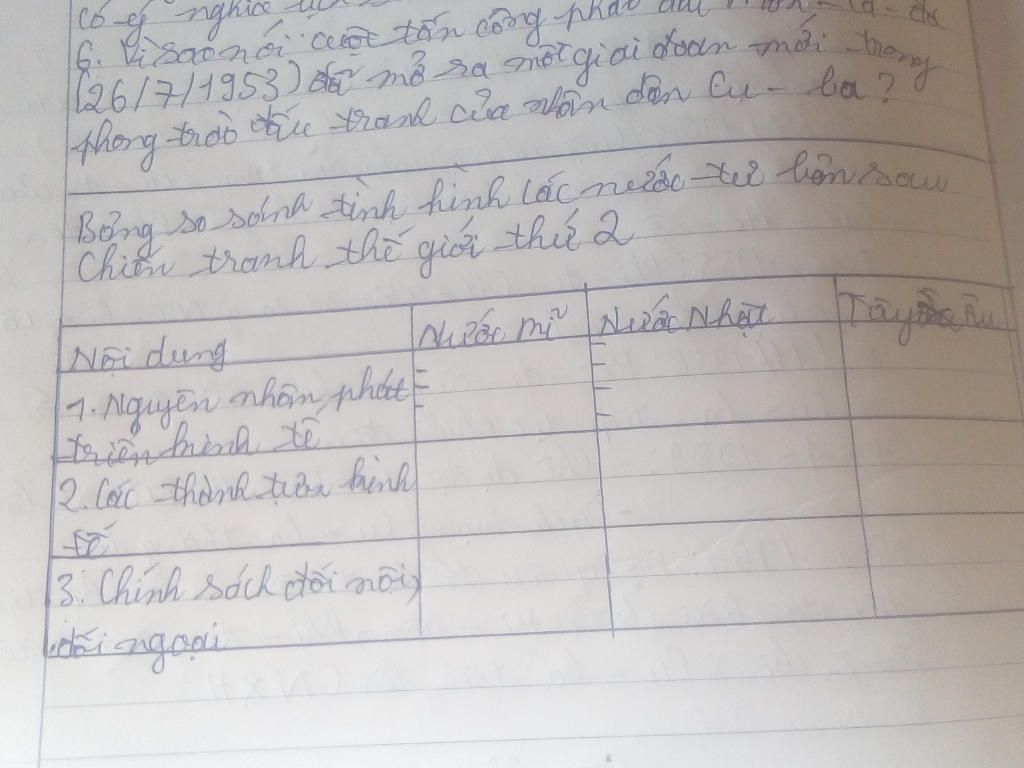 có ý nghĩa
6. Vì sao nói cuộc tấn công pháo đài Môn-ca-đa
(26/7/1953) đã mở ra một giai đoạn mới trong
phong trào đấu tranh của nhân dân Cu-ba?
Bảng so sánh tình hình các nước tư bản sau
Chiến tranh thế giới thứ 2
Nội dung
Nước Mĩ
Nước Nhật
Tây Âu
1. Nguyên nhân phát
triển kinh tế
2. Các thành tựu kinh
tế
3. Chính sách đối nội,
đối ngoại